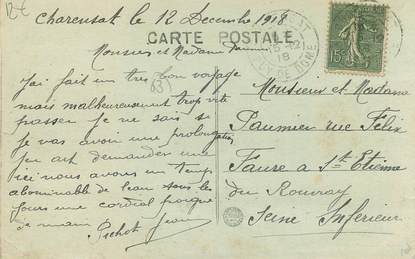 12€
Charensat le 12 Decembre 1918
CARTE POSTALE
Monsieur et Madame Paumier
J'ai fait un tres bon voyage
mais malheureusement trop vite
passer je ne sais si
je vas avoir une prolongation
jen ait demander une
ici nous avons un temps
abominable de l'eau tous les
jours une cordial poigné
de main Pichot Jean
Monsieur et Madame
Paumier rue Felix
Faure a St Etienne
du Rouvray
Seine Inferieur
15-12
18
15